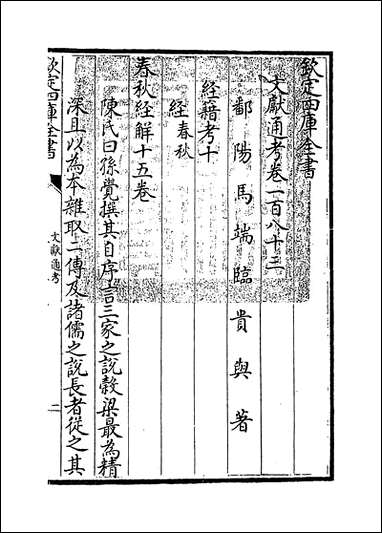 欽定四庫全書
文獻通考卷一百八十三
鄱陽馬端臨貴與著
經籍考十
經春秋
春秋經解十五卷
陳氏曰孫覺撰其自序言三家之說穀梁最為精
深且以為本雜取二傳及諸儒之說長者從之其
欽定四庫全書
文獻通考
二